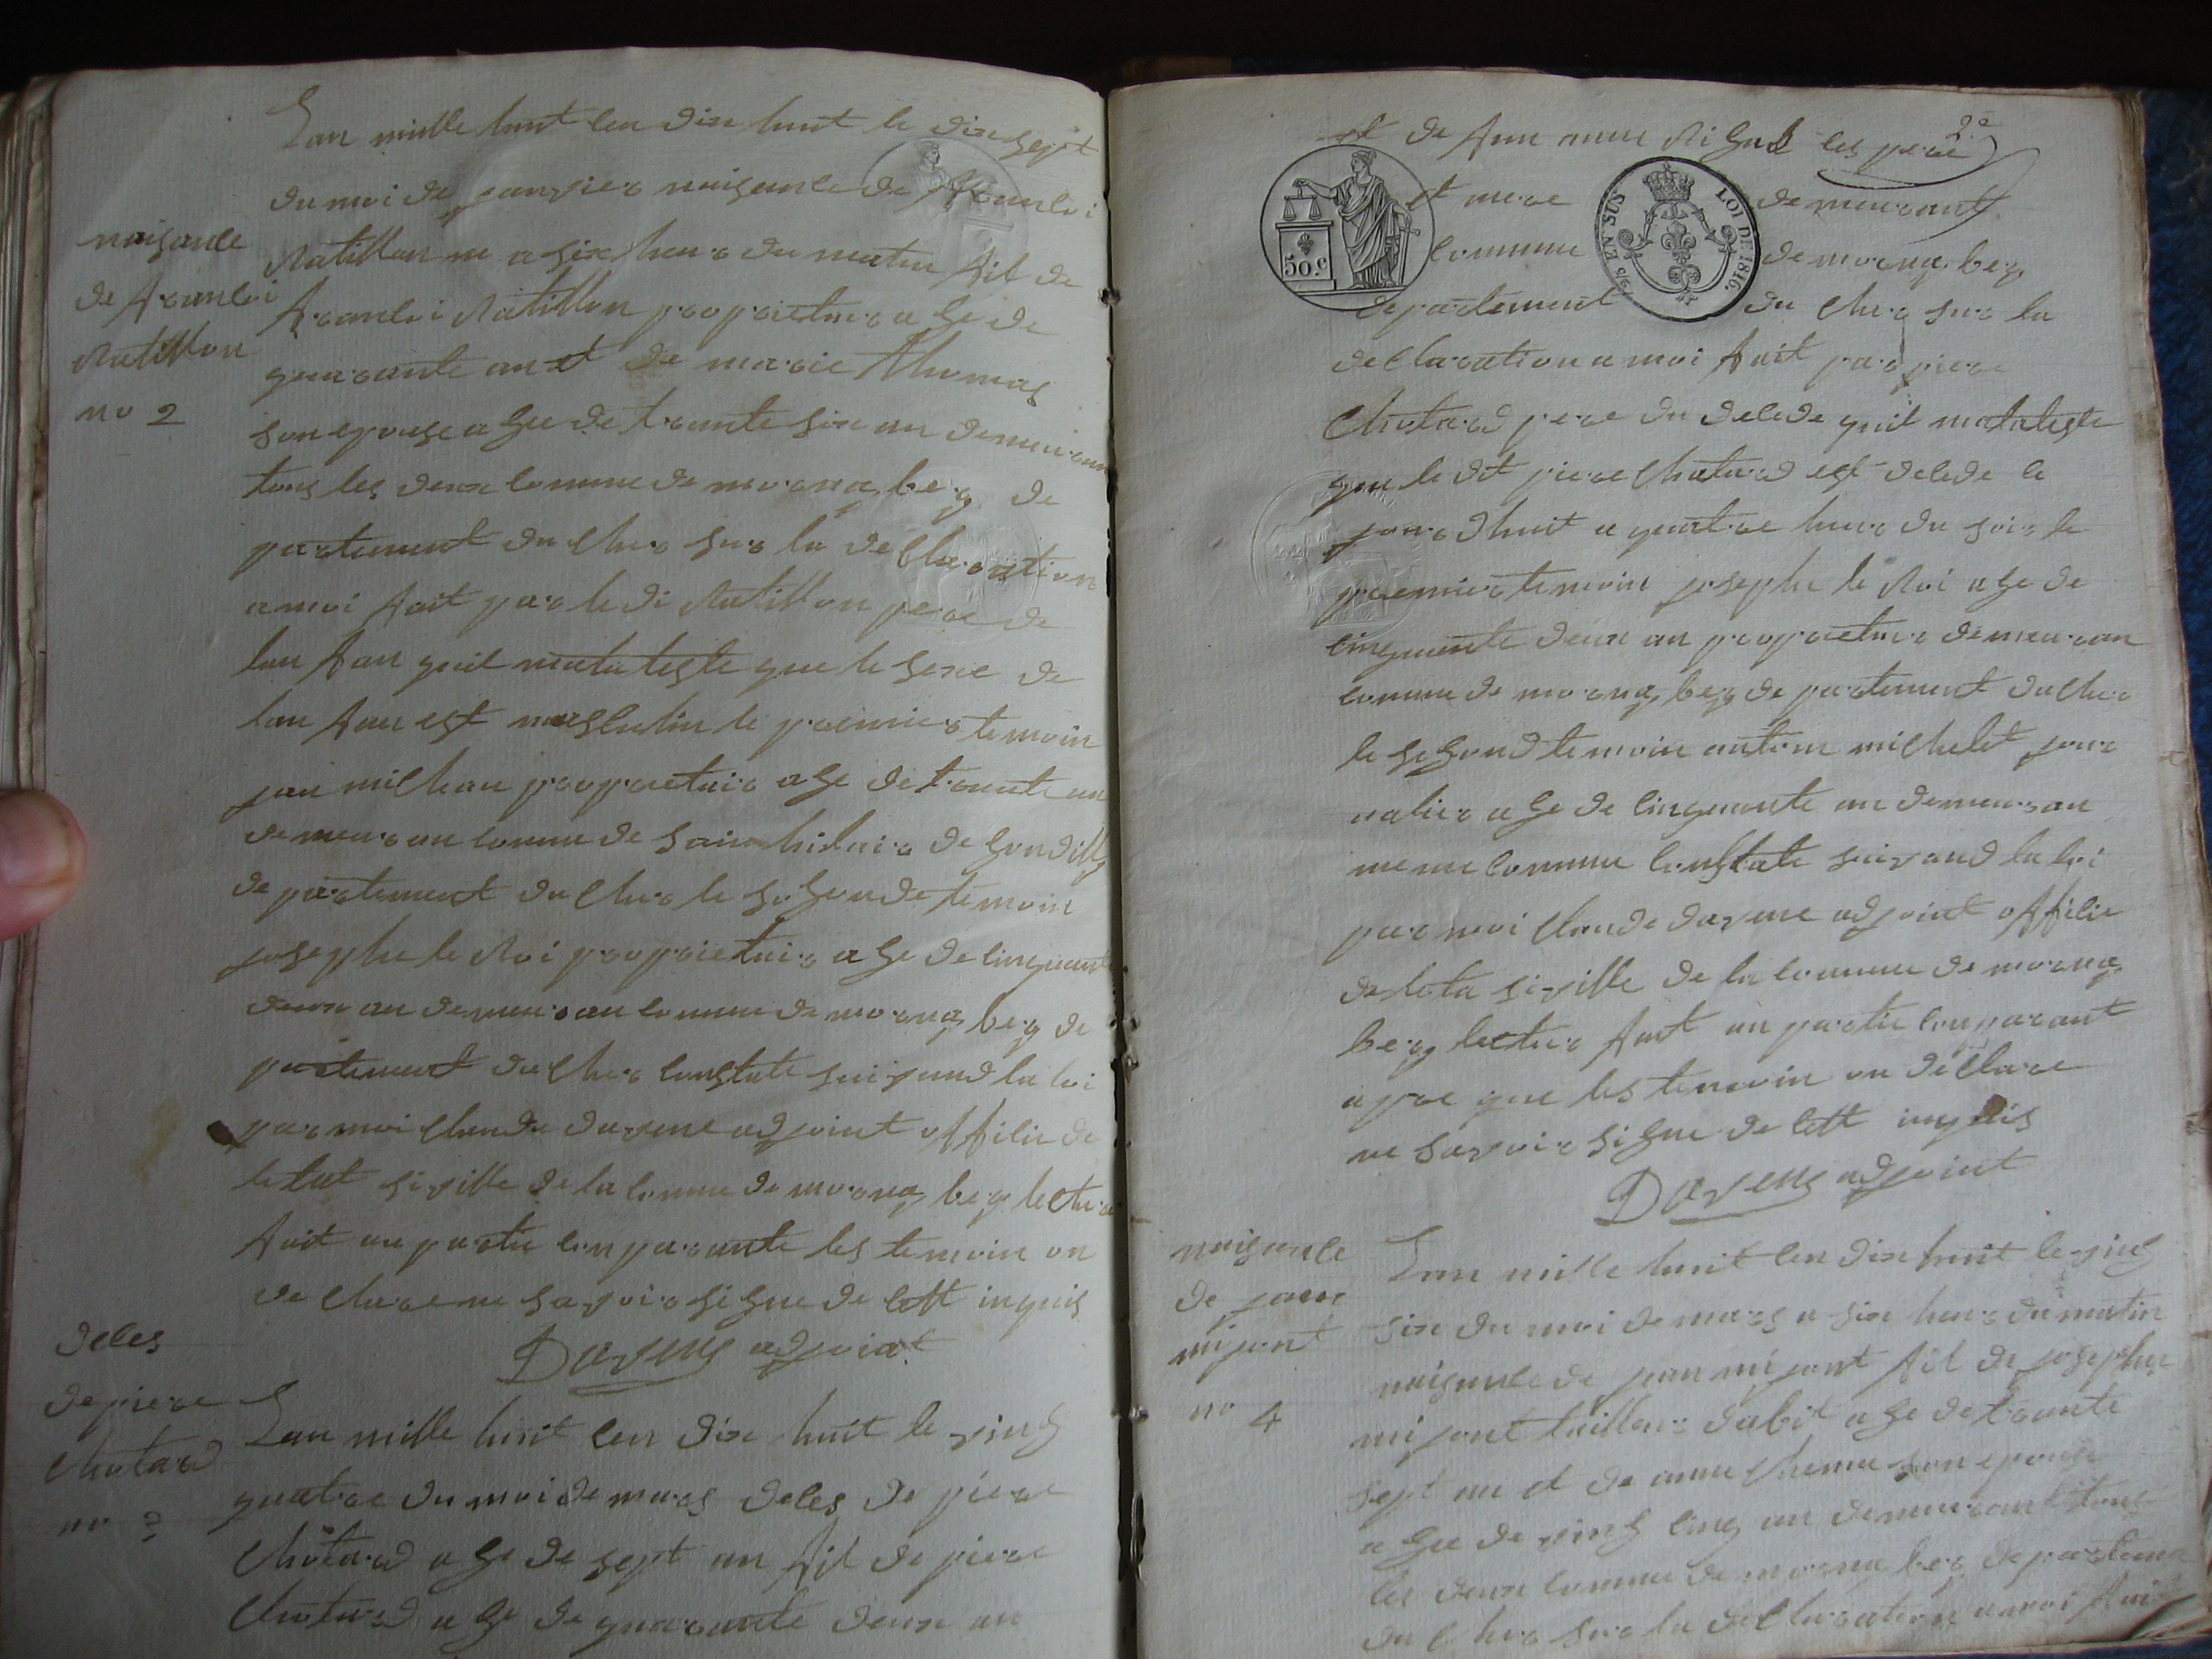 Lan mille huit cen dix huit le dix sept
du moi de janvier naisance de francoi
Ratillon ne a six heure du matin fil de
francoi Ratillon proprietaire age de
quarante an et de marie Thomas
son epouse agee de trante six an demeuran
tous les deux comune de mornay bery de
partement du Cher sur la declaration
a moi fait par le di Ratillon pere de
lan fan quil matateste que le sexe de
lan fan est masculin le premier temoin
jan michau propretaire age de trante an
demeuran comune de sain hilaire de gondilly
departement du Cher le segonde temoin
josephe le Roi proprietaire age de cinquante
deux an demeuran comune de mornay bery de
partement du Cher constate suivand la loi
par moi Claude davene adjoint officie de
letat siville de la comune de mornay bery lecture
fait au partie conparante les temoin on
declare ne savoir signe de cett inquis
Davene adjoint
naisance
de francoi
Ratillon
no 2
deces
de piere
Chotard
no 3
Lan mille huit cen dix huit le ving
quatre du moi de mars deces de piere
Chotard age de sept an fil de piere
Chotard age de quarante deux an
2e
et de les pere
et mere demeurant
commune de mornay bery
departement du Cher sur la
declaration a moi fait par piere
Chotard pere du decede quil matateste
que le dit piere Chotard est decede ce
jour dhuit a quatre heure du soir le
premier temoin josephe le Roi age de
cinquante deux an propretaire demeuran
comune de mornay bery departement du Cher
le segond temoin antoine michelet jour
nalier age de cinquante an demeuran
meme commune constate suivand la loi
par moi Claude davene adjoint officie
de leta siville de la comune de mornay
bery lecture fait au partie conparant
apre que les temoin on declare
ne savoir signe de cett inquis
Davene adjoint
50.c
EN SUS LOI DE 1816.
naisance
de jean
mijont
no 4
Lan mille huit cen dix huit le ving
six du moi de mars a six heure du matin
naisance de jean mijont fil de josephe
mijont tailleur dabit age de trante
sept an et de anne son epouse
agee de ving cinq an demeurant tous
les deux comune de mornay bery departement
du Cher sur la declaration a moi fait